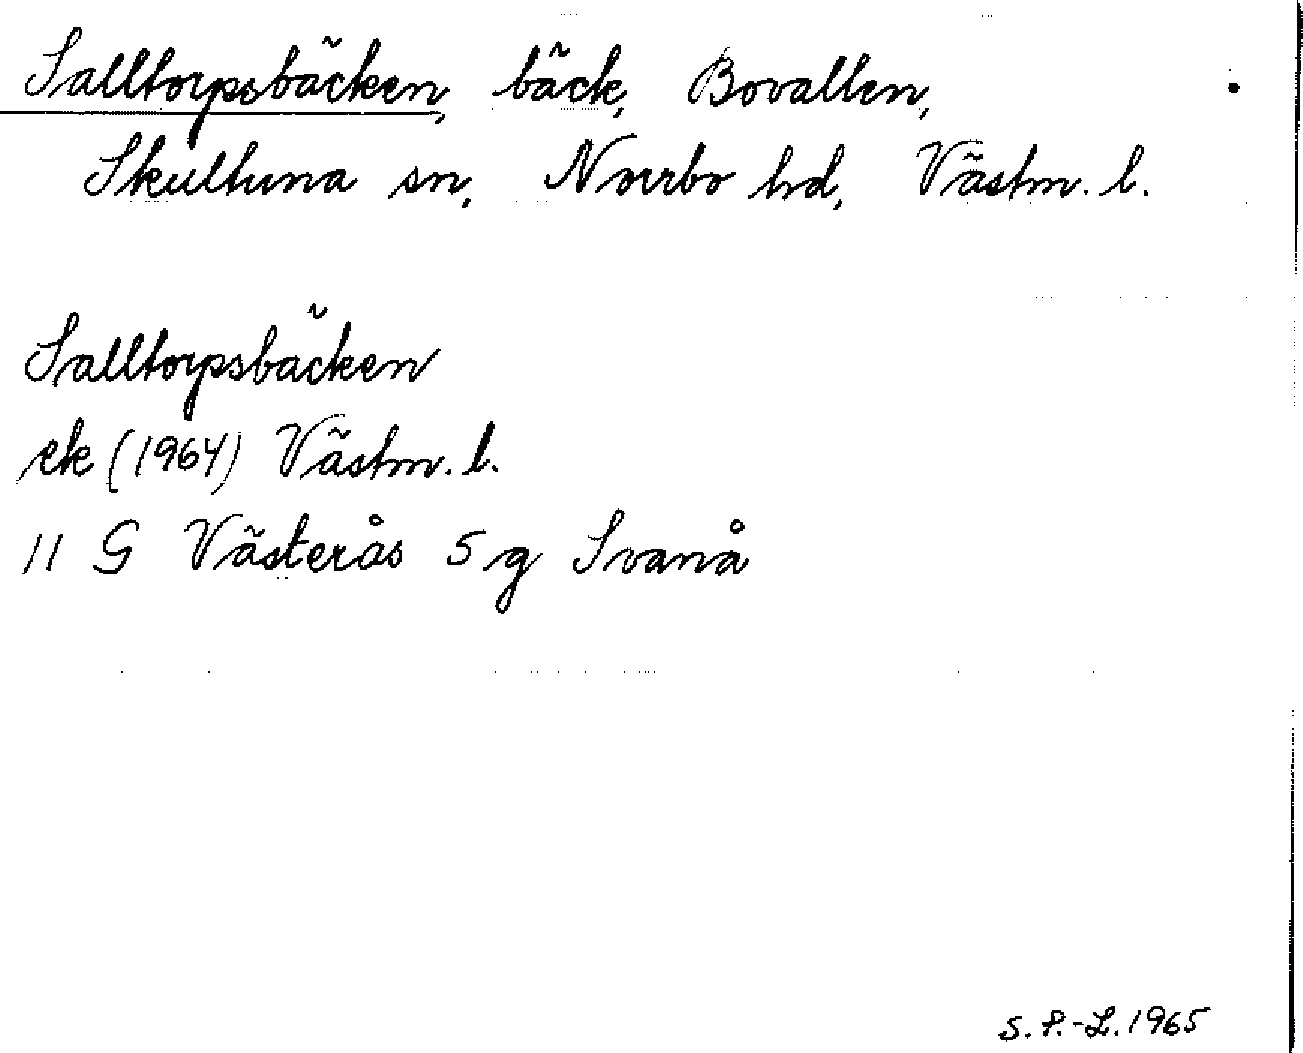 Salltorpsbäcken, bäck, Bovallen,
Skultuna sn, Norrbo hd, Västm. l.
Salltorpsbäcken
ek (1964) Västm. l.
11 G Västerås 5 g Svanå
S. P.-L. 1965